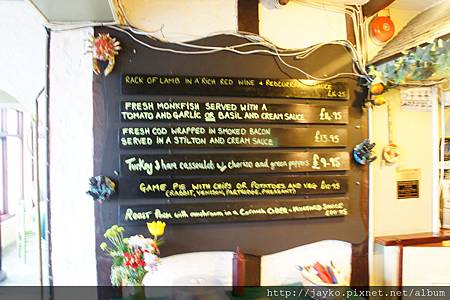 RACK OF LAMB IN A RICH RED WINE & REDCURRANT SAUCE
FRESH MONKFISH SERVED WITH A
TOMATO AND GARLIC OR BASIL AND CREAM SAUCE
FRESH COD WRAPPED IN SMOKED BACON
SERVED IN A STILTON AND CREAM SAUCE £13.95
Turkey & ham cassoulet w chorizo and green peppers £9.95
GAME PIE WITH CHIPS OR POTATOES AND VEG
(RABBIT, VENISON, PARTRIDGE, PHEASANT)
ROAST with mushroom in a Cornish CIDER & MUSTARD SAUCE
http://jayko.pixnet.net/album